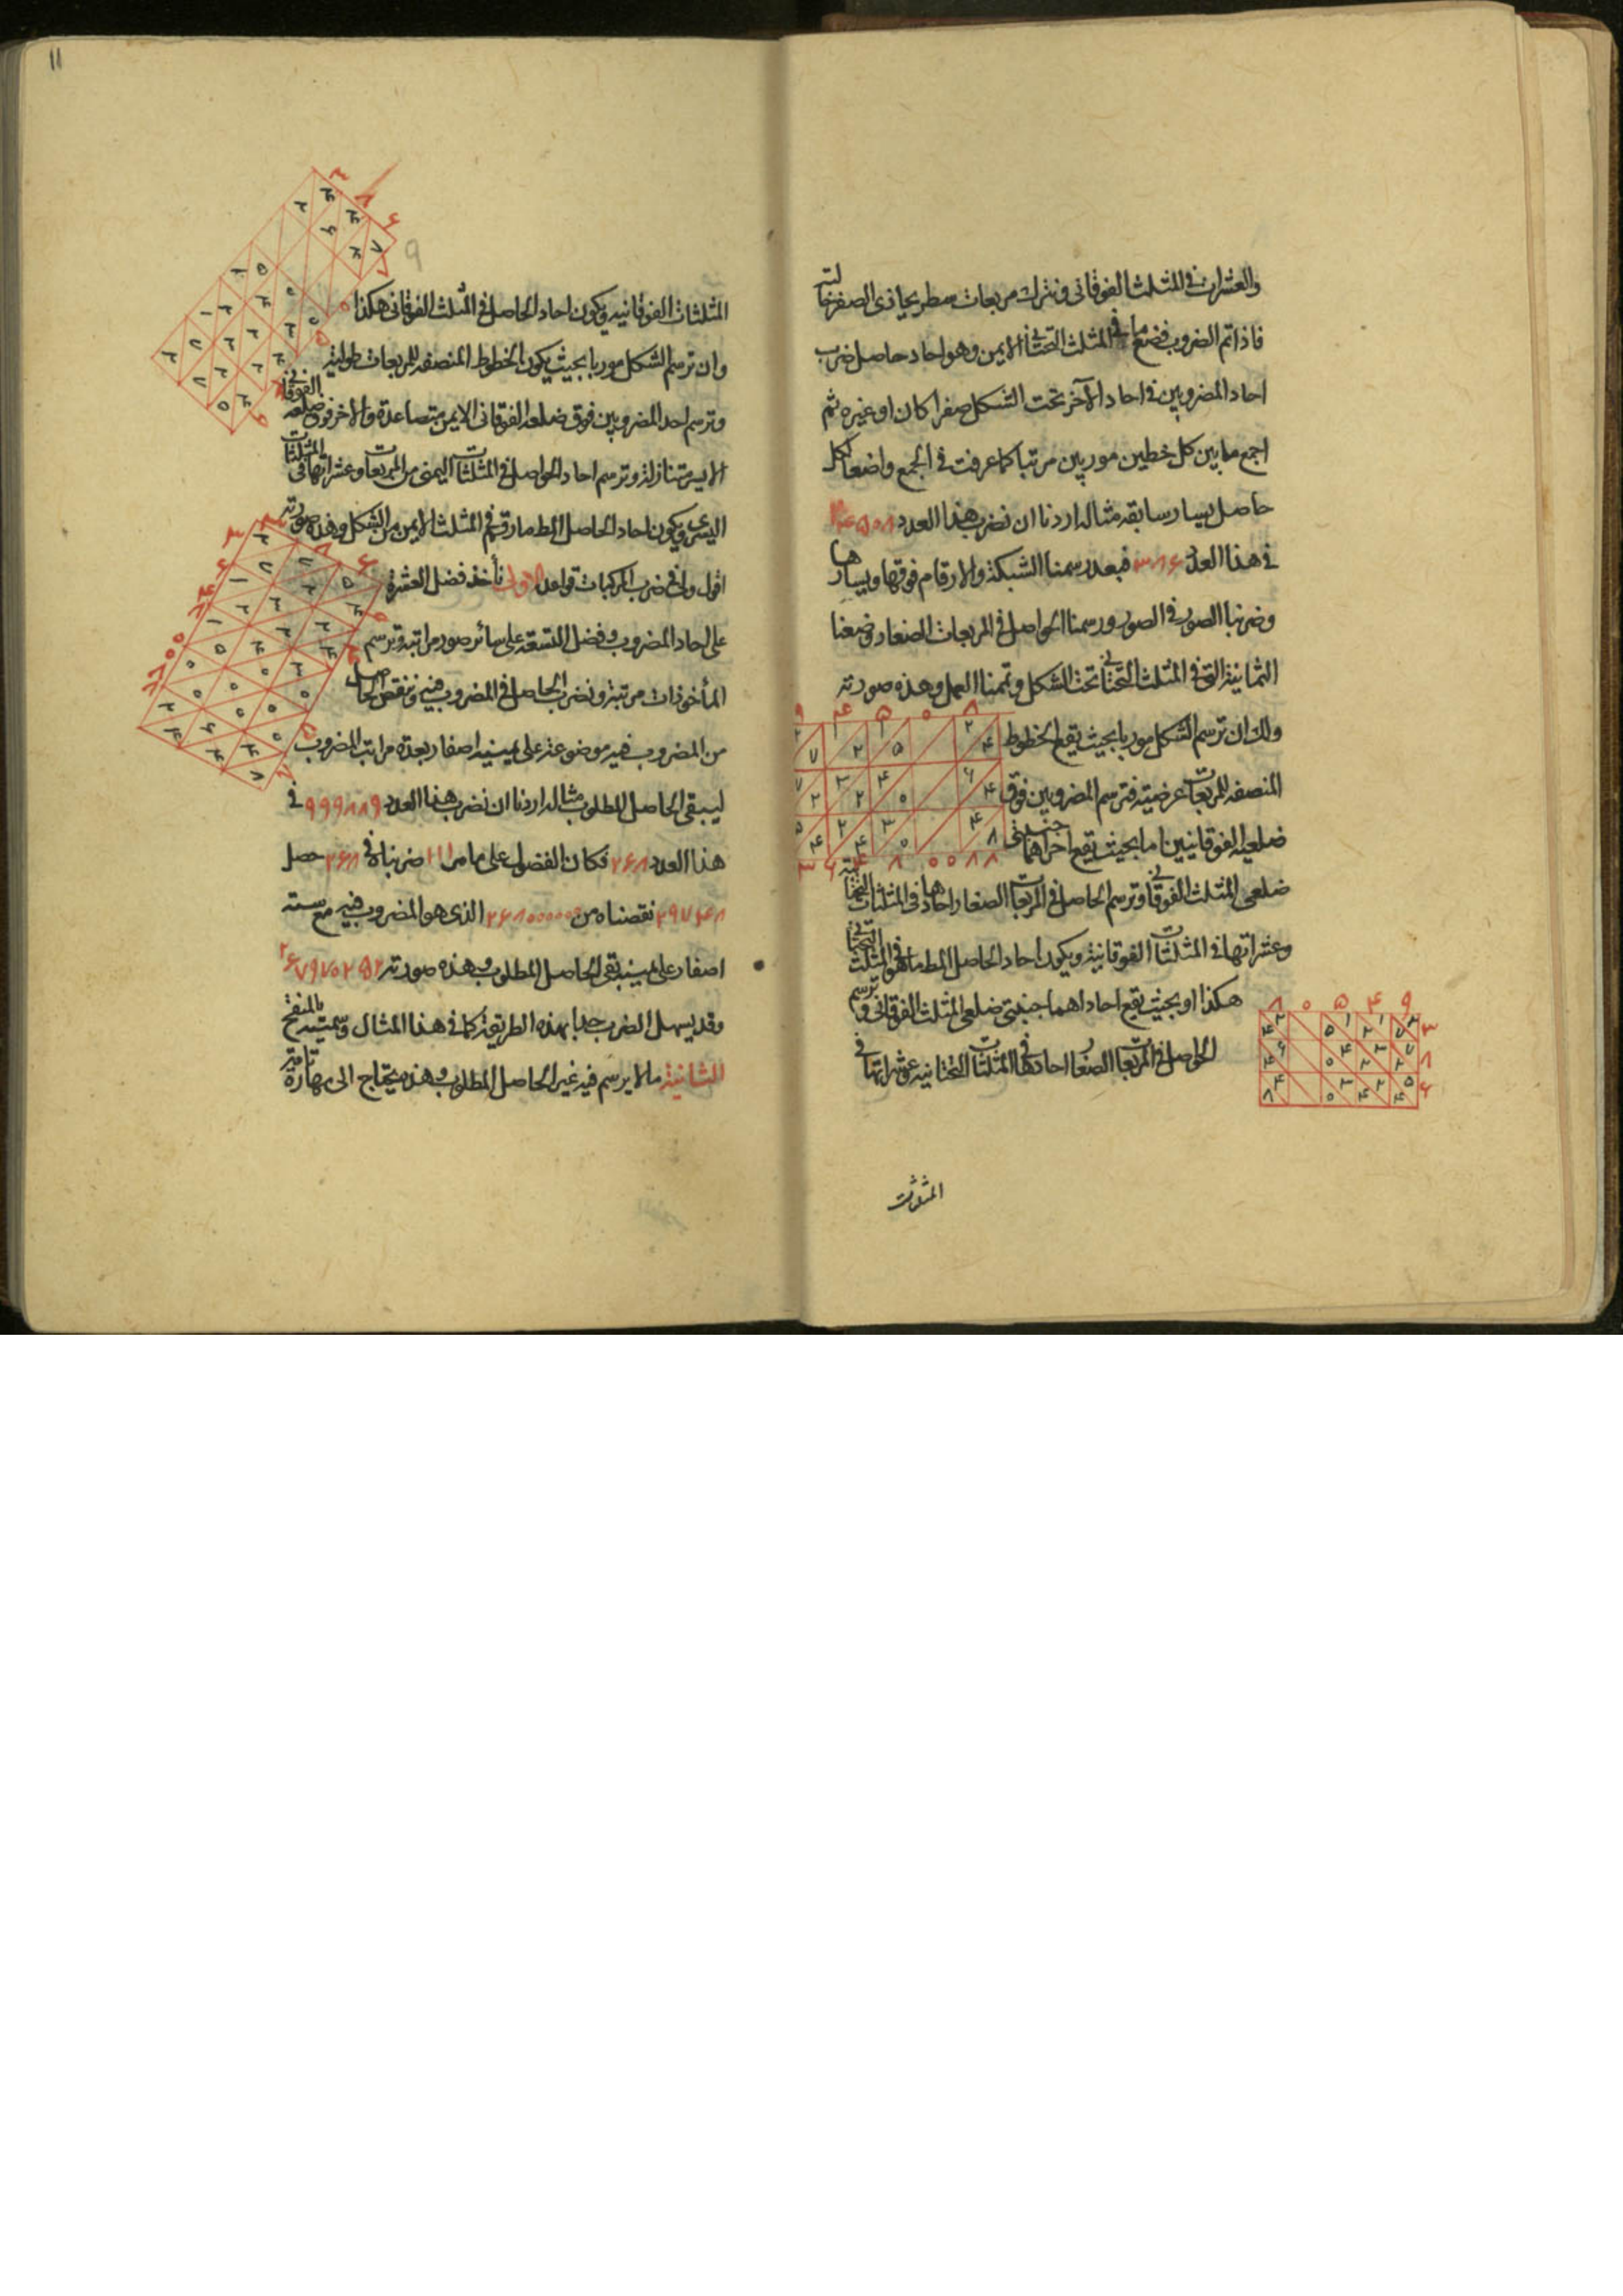 والعشرات فی المثلث الفوقانی ونترک مربعات سطر یحاذی الصفر خالیة
فاذا تم الضروب فضع ما فی المثلث التحتانی الایمن وهو احاد حاصل ضرب
احاد المضروبین فی احاد الآخر تحت الشکل صفرا کان او غیره ثم
اجمع ما بین کل خطین موربین مرتبا کما عرفت فی الجمع واضعا کل
حاصل یسار سابقه مثاله اردنا ان نضرب هذا العدد ۹۴۵۰۸
فی هذا العدد ۳۸۶ فبعد رسمنا الشبکة والارقام فوقها ویسارها
وضربنا الصور فی الصور ورسمنا الحواصل فی المربعات الصغار وضعنا
الثمانیة التی فی المثلث التحتانی تحت الشکل وتممنا العمل وهذه صورته
ولک ان ترسم الشکل موربا بحیث یقع الخطوط
المنصفة للمربعات عرضیة فترسم المضروبین فوق
ضلعیه الفوقانیین اما بحیث یقع اخراهما جنبتی
ضلعی المثلث الفوقانی وترسم الحاصل فی المربعات الصغار احادها فی المثلثات التحتانیة
وعشراتها فی المثلثات الفوقانیة ویکون احاد الحاصل المط ما هو فی المثلث التحتانی
هکذا او بحیث یقع احاداهما جنبتی ضلعی المثلث الفوقانی وترسم
الحواصل فی المربعات الصغار احادها فی المثلثات التحتانیة وعشراتها فی
المثلثات
۱۱
المثلثات الفوقانیة ویکون احاد الحاصل فی المثلث الفوقانی هکذا
وان ترسم الشکل موربا بحیث یکون الخطوط المنصفة للمربعات طولیة
وترسم احد المضروبین فوق ضلعه الفوقانی الایمن متصاعدة والآخر فوق ضلعه الفوقانی
الایسر متنازلة وترسم احاد الحواصل فی المثلثات الیمنی من المربعات وعشراتها فی المثلثات
الیسری ویکون احاد الحاصل المط ما رقم فی المثلث الایمن من الشکل وهذه صورته
اقول ولی فی ضرب المرکبات قواعد الاولی نأخذ فضل العشرة
علی احاد المضروب وفضل التسعة علی سائر صور مراتبه وترسم
المأخوذات مرتبة ونضرب الحاصل فی المضروب فیه وننقص الحاصل
من المضروب فیه موضوعة علی یمینه اصفار بعدة مراتب المضروب
لیبقی الحاصل المطلوب مثاله اردنا ان نضرب هذا العدد ۹۹۹۸۸۹ فی
هذا العدد ۲۶۸ فکان الفضول علی ما مر ۱۱۱ ضربناه فی ۲۶۸ حصل
۲۹۷۴۸ نقصناه من ۲۶۸۰۰۰۰۰۰ الذی هو المضروب فیه مع ستة
اصفار علی یمینه بقی الحاصل المطلوب وهذه صورته ۲۶۷۹۷۰۲۵۲
وقد یسهل الضرب جدا بهذه الطریقة کما فی هذا المثال وسمیته
الثانیة ما لا یرسم فیه غیر الحاصل المطلوب وهذه یحتاج الی مهارة تامة